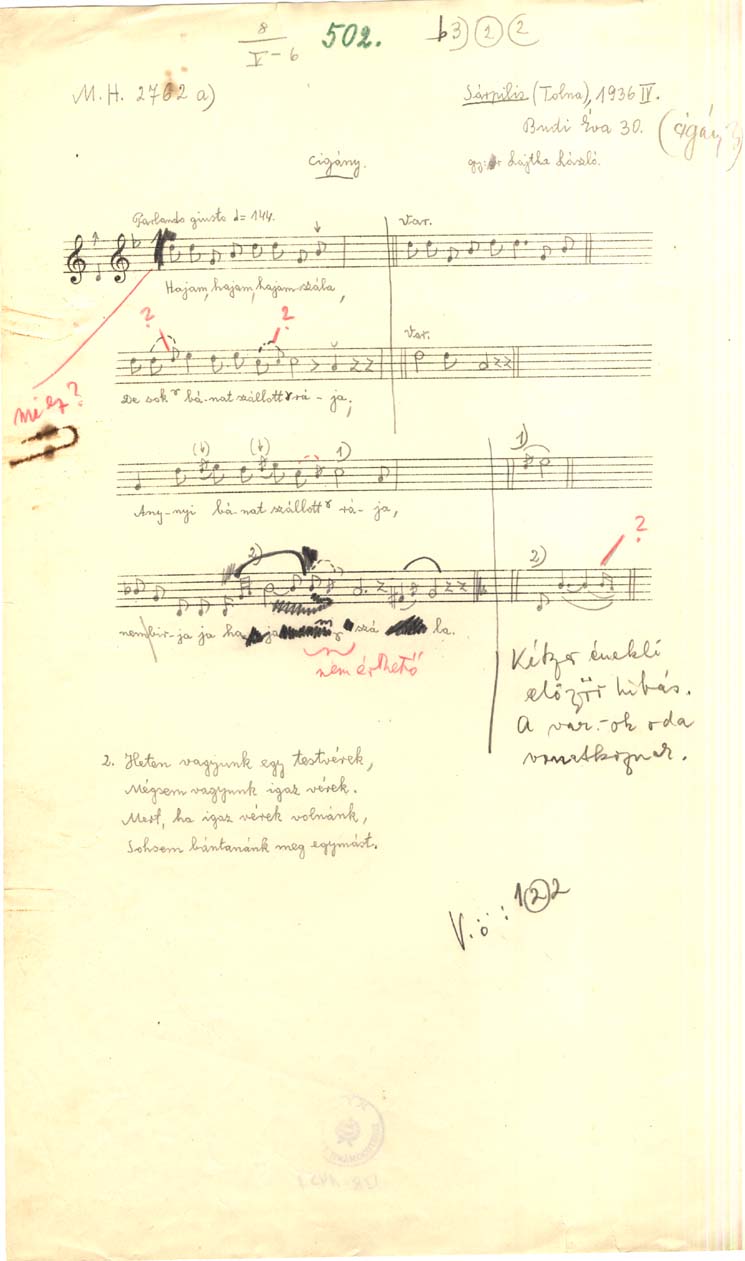 8
V-6
502.
b3) 2 2
M.H. 2762 a)
Sárpilis (Tolna), 1936 IV.
Budi Éva 30. (cigány
cigány.
gy: Lajtha László.
Parlando giusto = 144.
Var.
Hajam, hajam, hajam szála,
? ?
Var.
De sok bánat szállott rá-ja,
mi ez?
1) 1)
Any-nyi bá-nat szállott rá-ja,
?
2) 2)
nem bir-ja ja ha ja szá la.
nem érthető
Kétszer énekli
először hibás.
A var.-ok oda
vonatkoznak.
2. Heten vagyunk egy testvérek,
Mégsem vagyunk igaz vérek.
Mert, ha igaz vérek volnánk,
Sohsem bántanánk meg egymást.
V.ö: 1 2 2